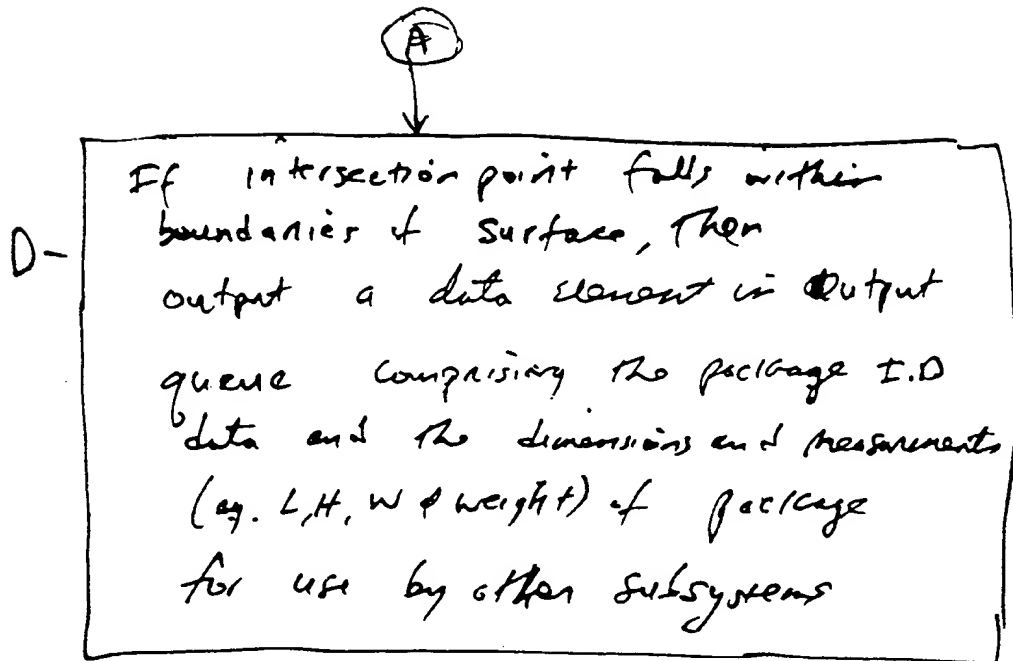 A
D-
If intersection point falls within
boundaries of surface, Then
output a data element in Output
queue comprising the package I.D
data and the dimensions and measurements
(eg. L, H, W & weight) of package
for use by other subsystems